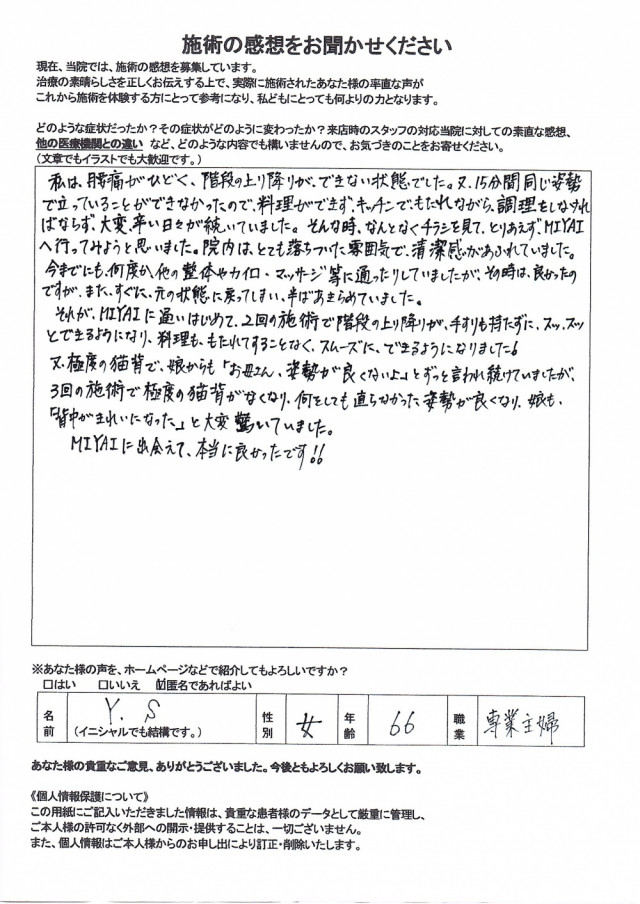 施術の感想をお聞かせください
現在、当院では、施術の感想を募集しています。
治療の素晴らしさを正しくお伝えする上で、実際に施術されたあなた様の率直な声が
これから施術を体験する方にとって参考になり、私どもにとっても何よりの力となります。
どのような症状だったか？その症状がどのように変わったか？来店時のスタッフの対応当院に対しての素直な感想、
他の医療機関との違い など、どのような内容でも構いませんので、お気づきのことをお寄せください。
（文章でもイラストでも大歓迎です。）
私は、腰痛がひどく、階段の上り降りが、できない状態でした。又、15分間同じ姿勢
で立っていることができなかったので、料理ができず、キッチンでもたれながら、調理をしなけれ
ばならず、大変、辛い日々が続いていました。そんな時、なんとなくチラシを見て、とりあえず、MIYAI
へ行ってみようと思いました。院内は、とても落ちついた雰囲気で、清潔感があふれていました。
今までにも、何度か、他の整体やカイロ・マッサージ等に通ったりしていましたが、その時は、良かったの
ですが、また、すぐに、元の状態に戻ってしまい、半ばあきらめていました。
それが、MIYAIに通いはじめて、2回の施術で階段の上り降りが、手すりも持たずに、スッ、スッ
とできるようになり、料理も、もたれてすることなく、スムーズに、できるようになりました!
又、極度の猫背で、娘からも「お母さん、姿勢が良くないよ」とずっと言われ続けていましたが、
3回の施術で極度の猫背がなくなり、何をしても直らなかった姿勢が良くなり、娘も、
「背中がきれいになった」と大変驚いていました。
MIYAIに出会えて、本当に良かったです!!
※あなた様の声を、ホームページなどで紹介してもよろしいですか？
□はい □いいえ ☑匿名であればよい
名前 Y.S （イニシャルでも結構です。） 性別 女 年齢 66 職業 専業主婦
あなた様の貴重なご意見、ありがとうございました。今後ともよろしくお願い致します。
《個人情報保護について》
この用紙にご記入いただきました情報は、貴重な患者様のデータとして厳重に管理し、
ご本人様の許可なく外部への開示・提供することは、一切ございません。
また、個人情報はご本人様からのお申し出により訂正・削除いたします。